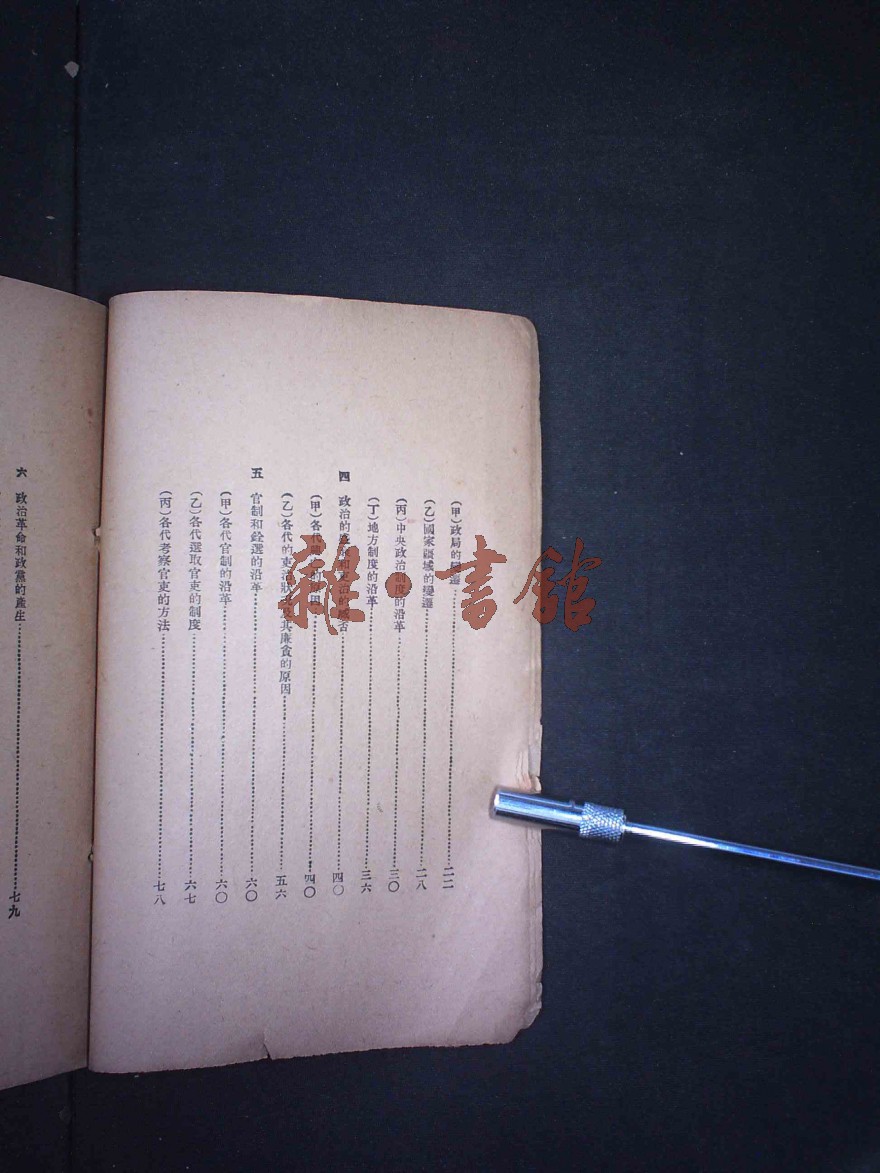 (甲)政局的變遷……二二
(乙)國家疆域的變遷……二八
(丙)中央政治制度的沿革……三〇
(丁)地方制度的沿革……三六
四 政治的和吏治的否……四〇
(甲)各代的原因……四〇
(乙)各代的吏治狀況及其廉貪的原因……五六
五 官制和銓選的沿革……六〇
(甲)各代官制的沿革……六〇
(乙)各代選取官吏的制度……六七
(丙)各代考察官吏的方法……七八
六 政治革命和政黨的產生……七九
雜·書館